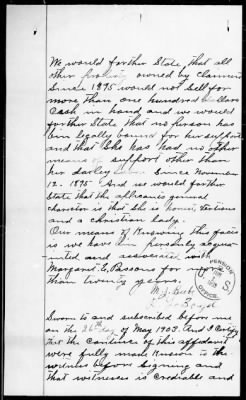 We would further State, that all
other property owned by claimant
Since 1895 would not Sell for
more than one hundred dollars
Cash in hand, and we would
further State that no person has
bin legally bound for her support
and that She has had no other
means of support other than
her dayley labor Since November
12 - 1895 And we would further
State that the applicants general
charictor is that She is honest,
and a christian lady.
Our means of Knowing this facts
is we have bin persionly acquai
inted and associated with
Margaret E, Parsons for more
than twenty years.
Sworn to and subscribed before me
on the 26th day of May 1903. And I Certify
that the contence of this affidavit
were fully made Known to the
witness before Signing and
that witnesses is Creditable and
PENSION
OFFICE
U S